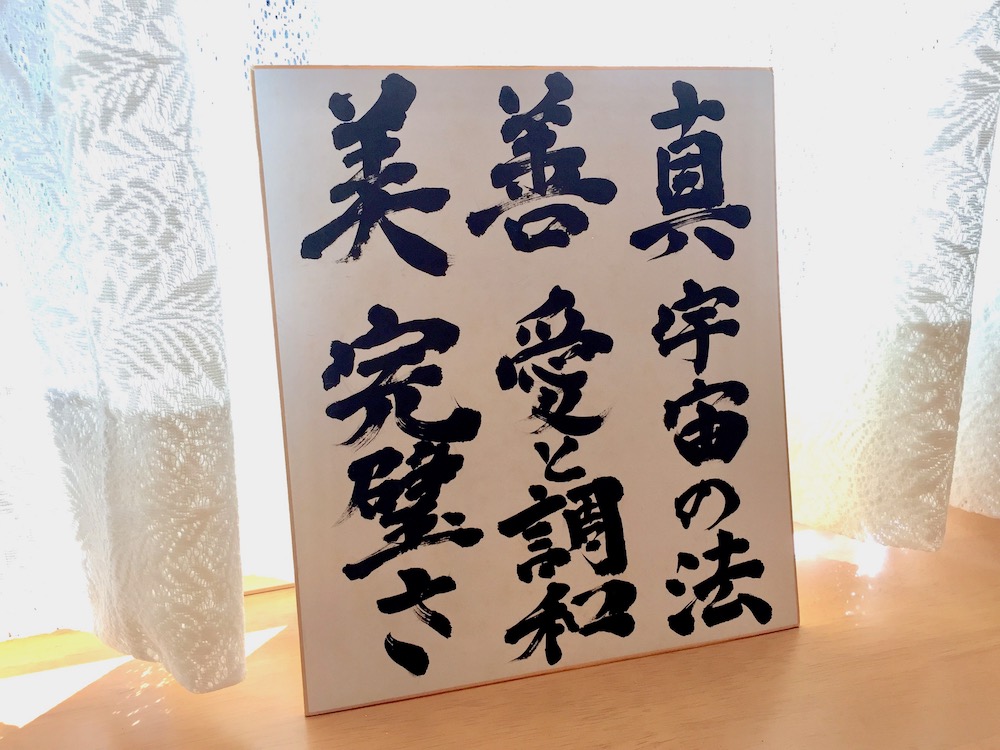 真 宇宙の法
善 愛と調和
美 完璧さ